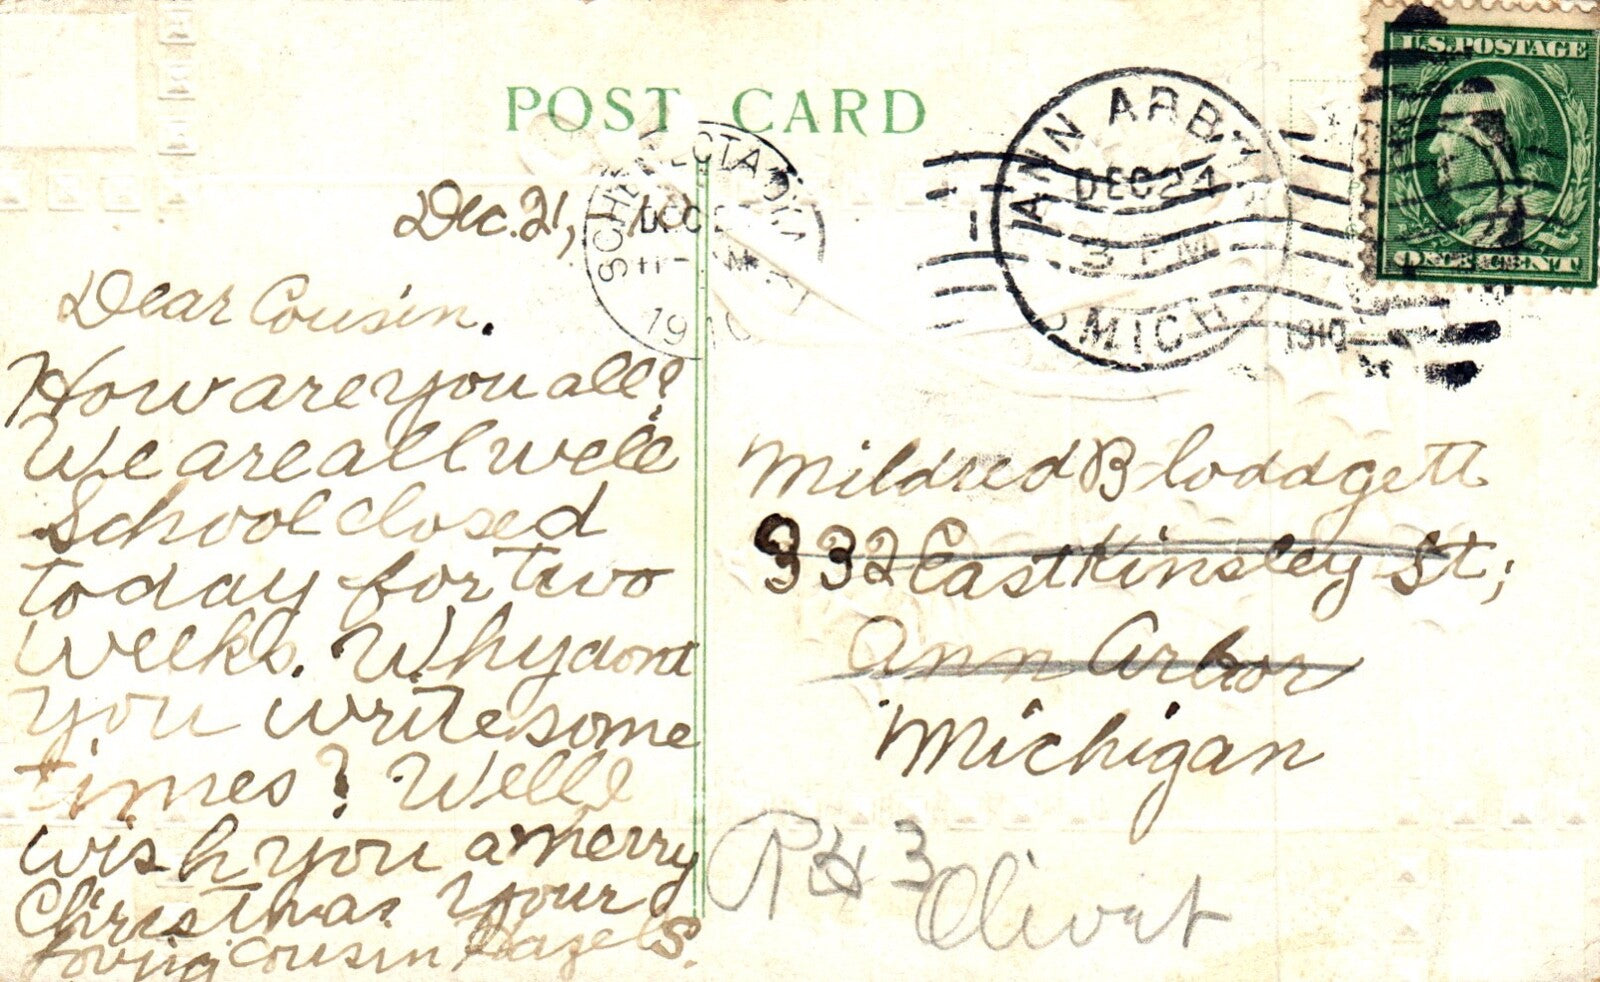 POST CARD
U.S. POSTAGE
ONE CENT
ANN ARBOR
DEC 24
3 PM
MICH.
1910
SCHENECTADY
DEC
11-
1910
Dec. 21,
Dear Cousin.
How are you all?
We are all well
School closed
today for two
weeks. Why dont
you write some
times? Well I
wish you a merry
Christmas Your
loving cousin Hazel S.
Mildred Bloddgett
332 East Kinsley St;
Ann Arbor
Michigan
3
Olivet